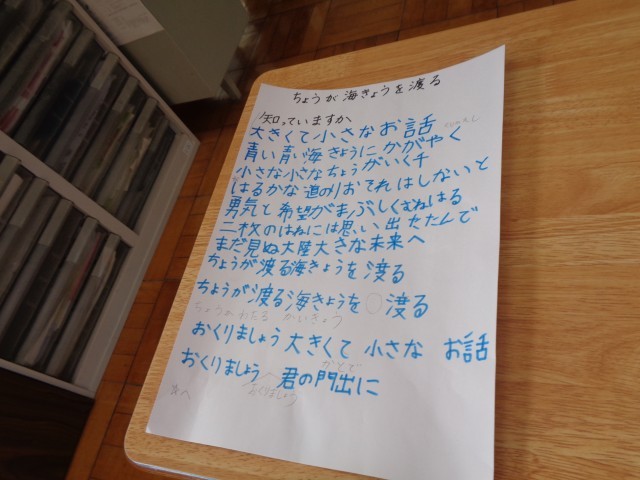 ちょうが海きょうを渡る
知っていますか
大きくて小さなお話
青い青い海きょうにかがやく
小さな小さなちょうがいくチ
はるかな道のりおそれはしないと
勇気と希望がまぶしくむねはる
二枚のはねには思い出たたんで
まだ見ぬ大陸大きな未来へ
ちょうが渡る海きょうを渡る
ちょうが渡る海きょうを渡る
ちょうがわたる かいきょう
おくりましょう大きくて 小さな お話
かどで
おくりましょう 君の門出に
おくりましょう